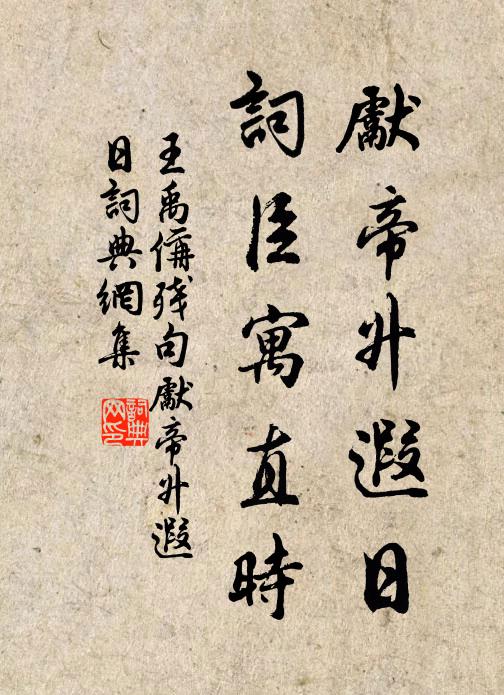 獻帝升遐日
詞臣寓直時
王禹偁残句獻帝升遐
日詞典網集
詞典
网印